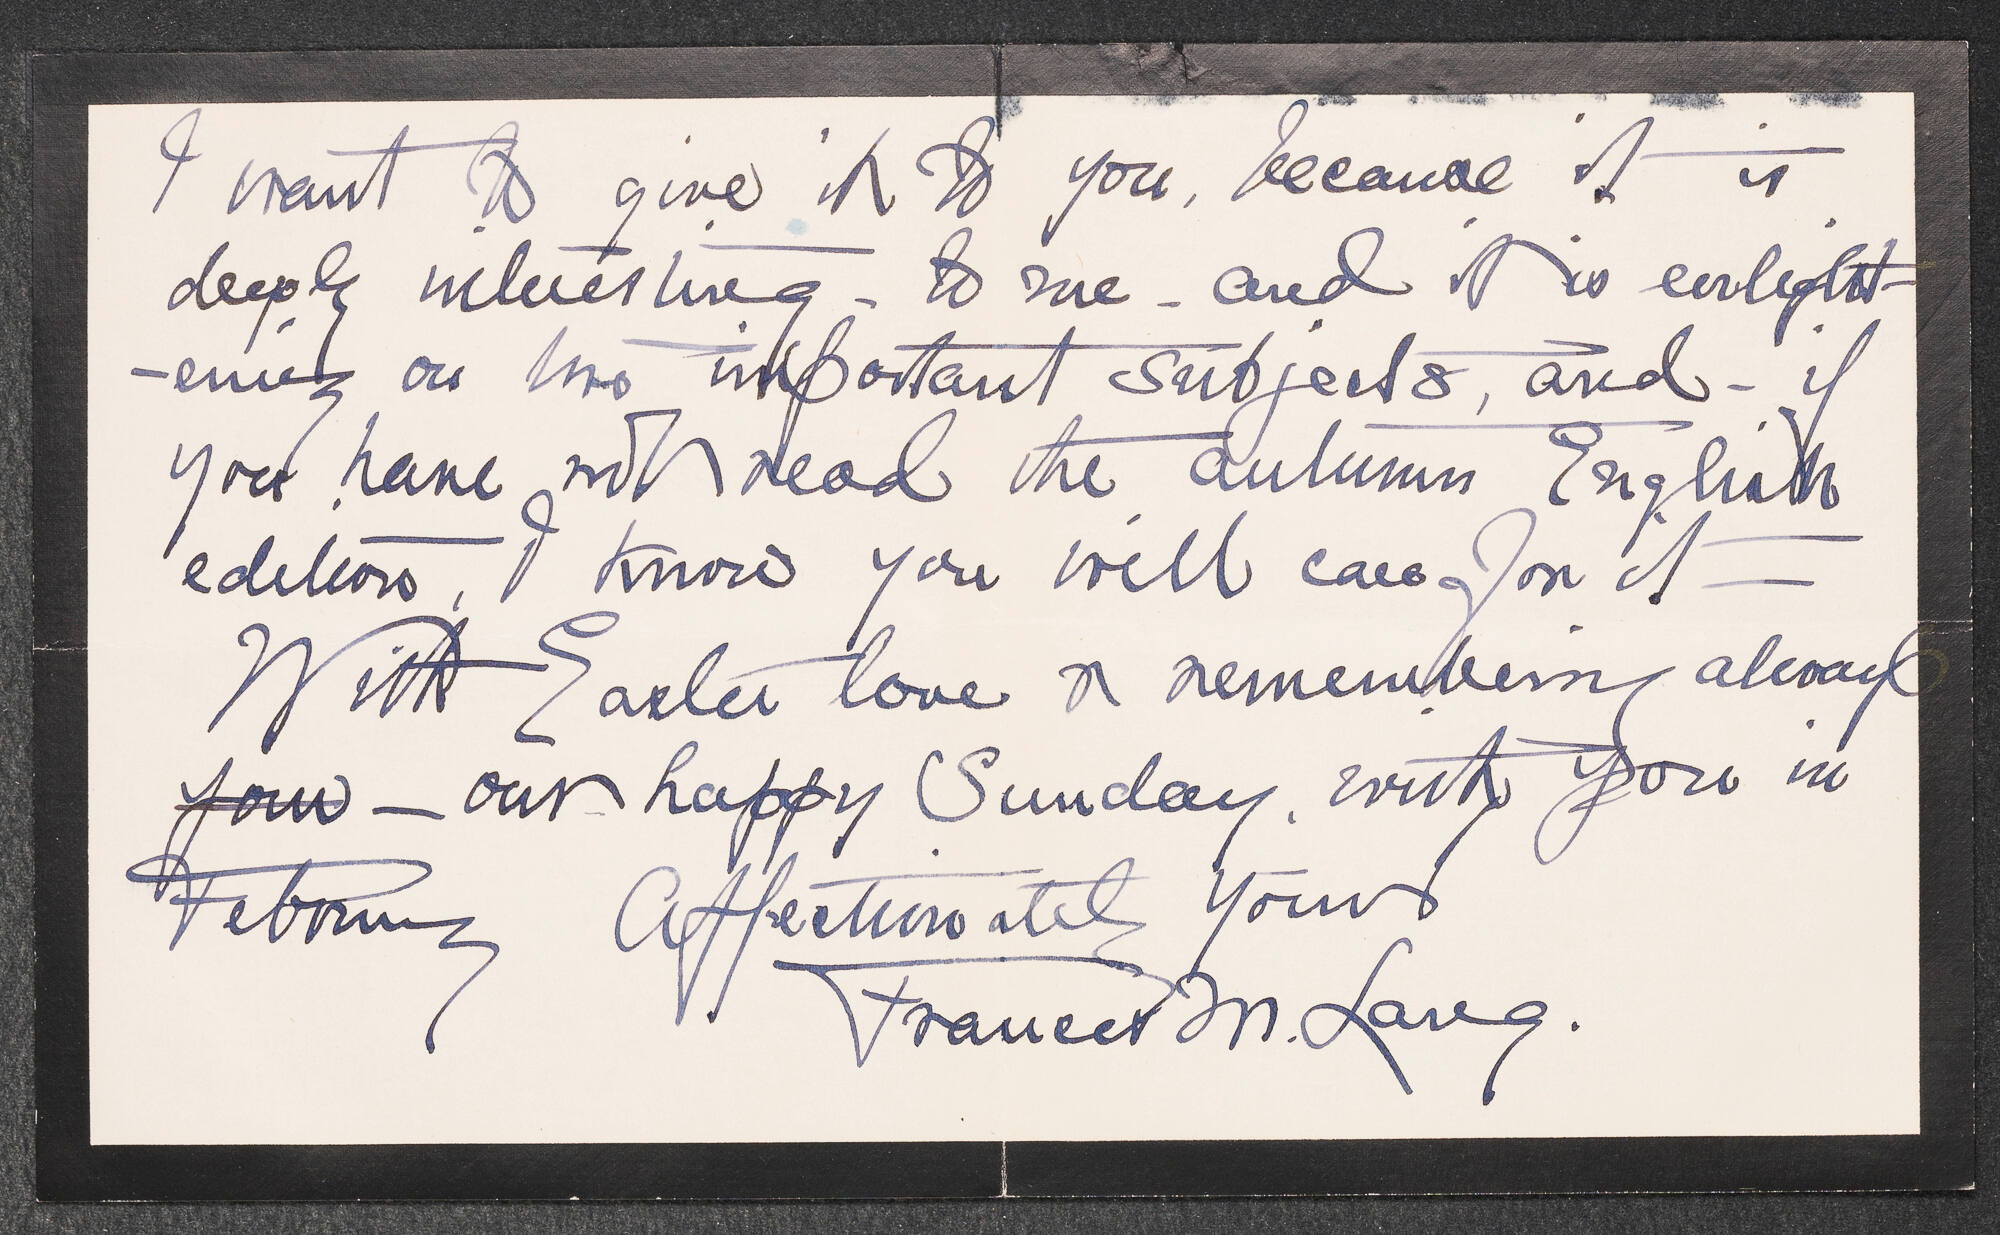 I want to give it to you, because it is
deeply interesting - to me - and it is enlight-
-ening on two important subjects, and - if
you have not read the autumn English
edition, I know you will care for it =
With Easter love & remembering always
your — our happy Sunday, with you in
February Affectionately yours
Frances M. Lang.